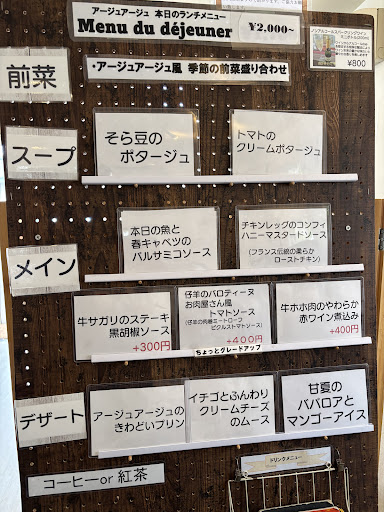 アージュアージュ 本日のランチメニュー
Menu du déjeuner
¥2,000~
ノンアルコールスパークリングワイン
¥800
前菜
・アージュアージュ風 季節の前菜盛り合わせ
スープ
そら豆の
ポタージュ
トマトの
クリームポタージュ
メイン
本日の魚と
春キャベツの
バルサミコソース
チキンレッグのコンフィ
ハニーマスタードソース
(フランス伝統の柔らか
ローストチキン)
牛サガリのステーキ
黒胡椒ソース
+300円
仔羊のバロティーヌ
お肉屋さん風
トマトソース
(仔羊の肉巻ミートローフ
ピクルストマトソース)
+400円
牛ホホ肉のやわらか
赤ワイン煮込み
+400円
ちょっとグレードアップ
デザート
アージュアージュの
きわどいプリン
イチゴとふんわり
クリームチーズ
のムース
甘夏の
ババロアと
マンゴーアイス
コーヒーor 紅茶
ドリンクメニュー